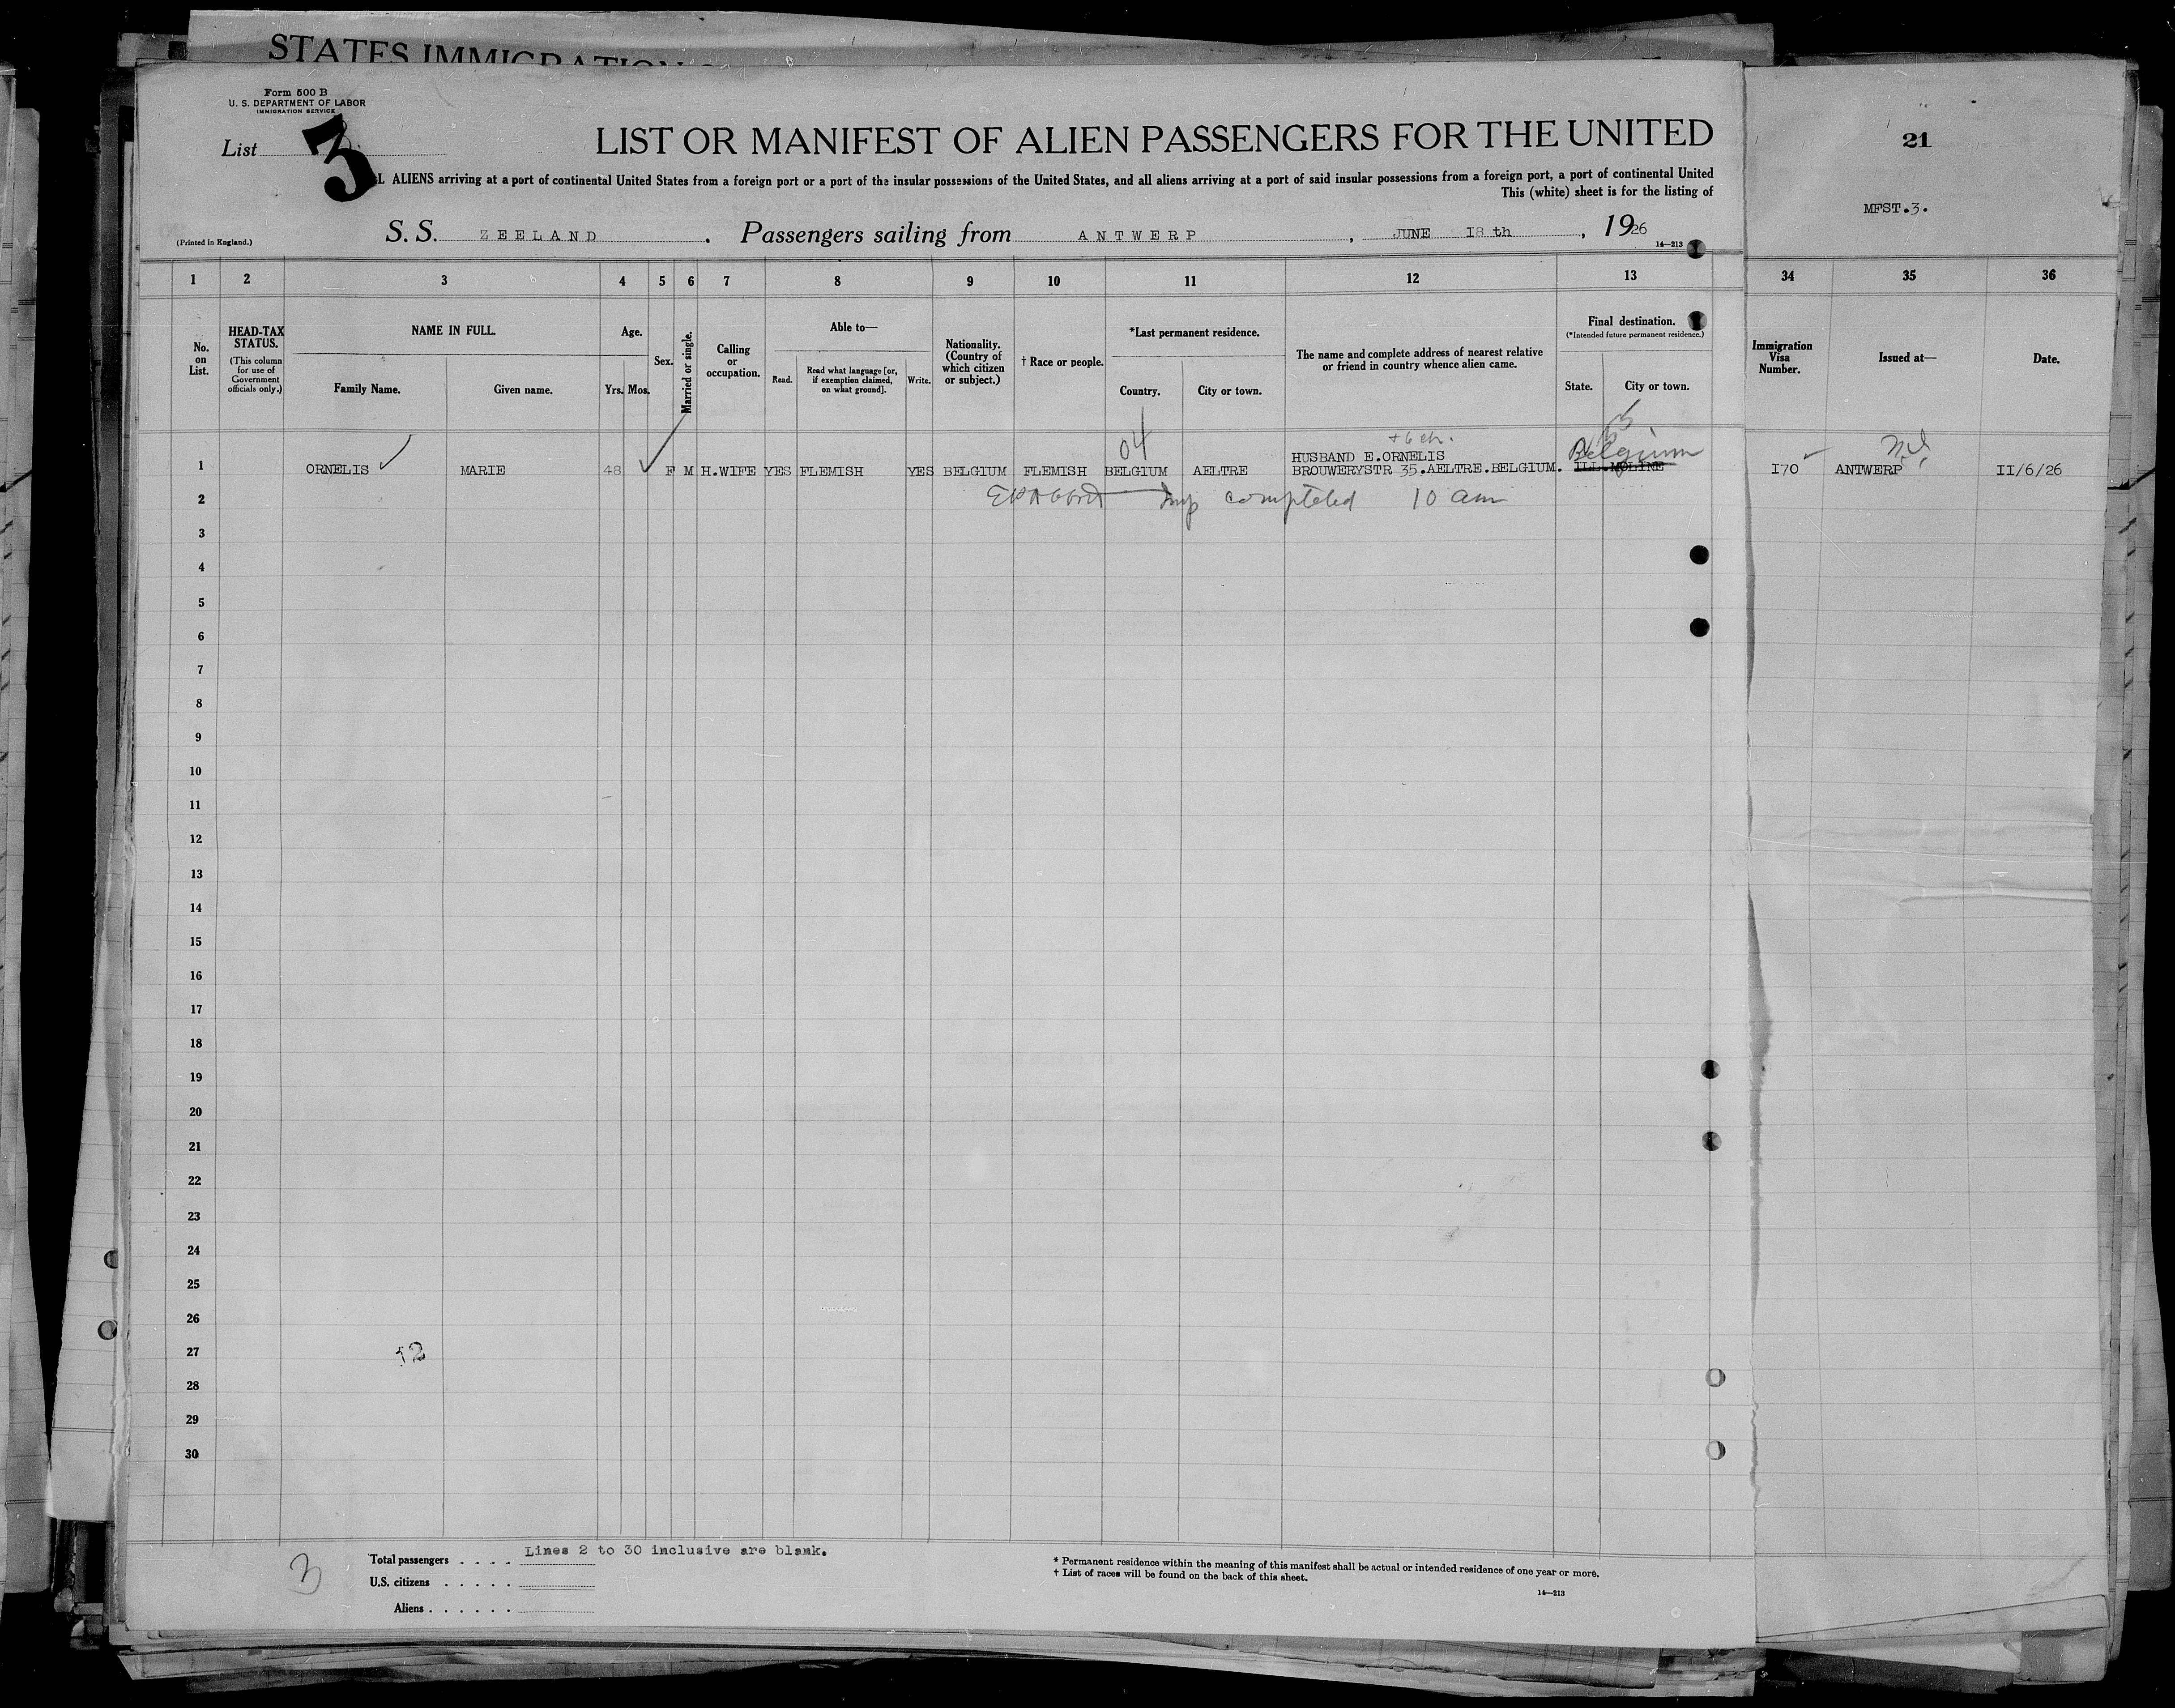 STATES IMMIGRATION
Form 500 B
U. S. DEPARTMENT OF LABOR
IMMIGRATION SERVICE
List 3
LIST OR MANIFEST OF ALIEN PASSENGERS FOR THE UNITED
L ALIENS arriving at a port of continental United States from a foreign port or a port of the insular possessions of the United States, and all aliens arriving at a port of said insular possessions from a foreign port, a port of continental United
This (white) sheet is for the listing of
(Printed in England.)
S. S. ZEELAND. Passengers sailing from ANTWERP, JUNE 18 th, 1926
14—213
21
MFST.3.
1 2 3 4 5 6 7 8 9 10 11 12 13 34 35 36
No. on List.
HEAD-TAX STATUS.
(This column for use of Government officials only.)
NAME IN FULL.
Family Name. Given name.
Age.
Yrs. Mos.
Sex.
Married or single.
Calling or occupation.
Able to—
Read. Read what language [or, if exemption claimed, on what ground]. Write.
Nationality. (Country of which citizen or subject.)
† Race or people.
*Last permanent residence.
Country. City or town.
The name and complete address of nearest relative or friend in country whence alien came.
Final destination.
(*Intended future permanent residence.)
State. City or town.
Immigration Visa Number.
Issued at—
Date.
04
+ 6 ch.
Belgium
1 ORNELIS MARIE 48 F M H.WIFE YES FLEMISH YES BELGIUM FLEMISH BELGIUM AELTRE HUSBAND E.ORNELIS
BROUWERYSTR 35.AELTRE.BELGIUM. ILL.MOLINE I70 ANTWERP II/6/26
2 completed 10 am
3
4
5
6
7
8
9
10
11
12
13
14
15
16
17
18
19
20
21
22
23
24
25
26
27 12
28
29
30
3
Total passengers . . . . Lines 2 to 30 inclusive are blank.
U.S. citizens . . . . .
Aliens . . . . . .
* Permanent residence within the meaning of this manifest shall be actual or intended residence of one year or more.
† List of races will be found on the back of this sheet.
14—213